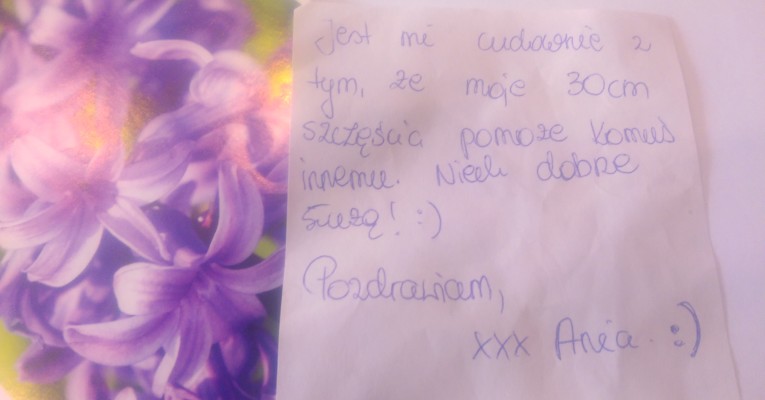 Jest mi cudownie z
tym, że moje 30cm
szczęścia pomoże komuś
innemu. Niech dobrze
służą! :)
Pozdrawiam,
xxx Ania. :)